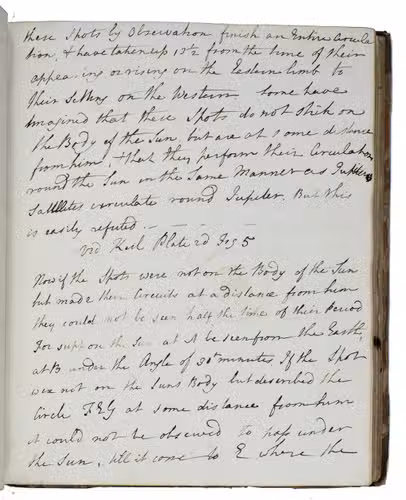 these Spots by Observation finish an Entire Circula
tion, & have taken up 13½ from the time of their
appearing or rising on the Eastern limb to
their Setting on the Western some have
imagined that these Spots do not stick on
the Body of the Sun but are at some distance
from him, & that they perform their Circulation
round the Sun in the Same Manner as Jupiters
Satellites circulate round Jupiter. But this
is easily refuted.
vid Keil Plate 2d Fig 5
Now if the Spots were not on the Body of the Sun
but made their Circuits at a distance from him
they could not be seen half the time of their Period
For suppose the Sun at A be seen from the Earth,
at B under the Angle of 30 minutes, If the Spot
were not on the Suns Body but described the
Circle FEG at some distance from him
it could not be observed to pass under
the Sun, till it come to E where the